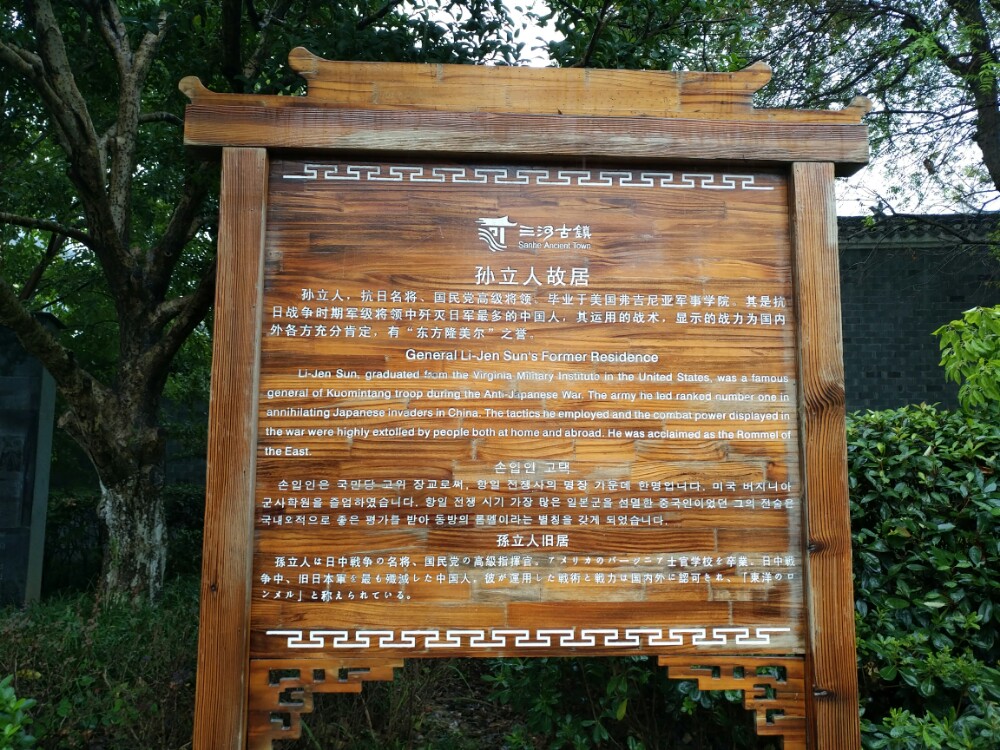 三河古鎮
Sanhe Ancient Town
孙立人故居
孙立人，抗日名将、国民党高级将领、毕业于美国弗吉尼亚军事学院、其是抗
日战争时期军级将领中歼灭日军最多的中国人，其运用的战术，显示的战力为国内
外各方充分肯定，有“东方隆美尔”之誉。
General Li-Jen Sun's Former Residence
Li-Jen Sun, graduated from the Virginia Military Institute in the United States, was a famous
general of Kuomintang troop during the Anti-Japanese War. The army he led ranked number one in
annihilating Japanese invaders in China. The tactics he employed and the combat power displayed in
the war were highly extolled by people both at home and abroad. He was acclaimed as the Rommel of
the East.
손입인 고택
손입인은 국민당 고위 장교로써, 항일 전쟁사의 명장 가운데 한명입니다. 미국 버지니아
군사학원을 졸업하였습니다. 항일 전쟁 시기 가장 많은 일본군을 섬멸한 중국인이었던 그의 전술은
국내외적으로 좋은 평가를 받아 동방의 롬멜이라는 별칭을 갖게 되었습니다.
孫立人旧居
孫立人は日中戦争の名将、国民党の高級指揮官。アメリカのバージニア士官学校を卒業、日中戦
争中、旧日本軍を最も殲滅した中国人。彼が運用した戦術と戦力は国内外に認可され、「東洋のロ
ンメル」と称えられている。